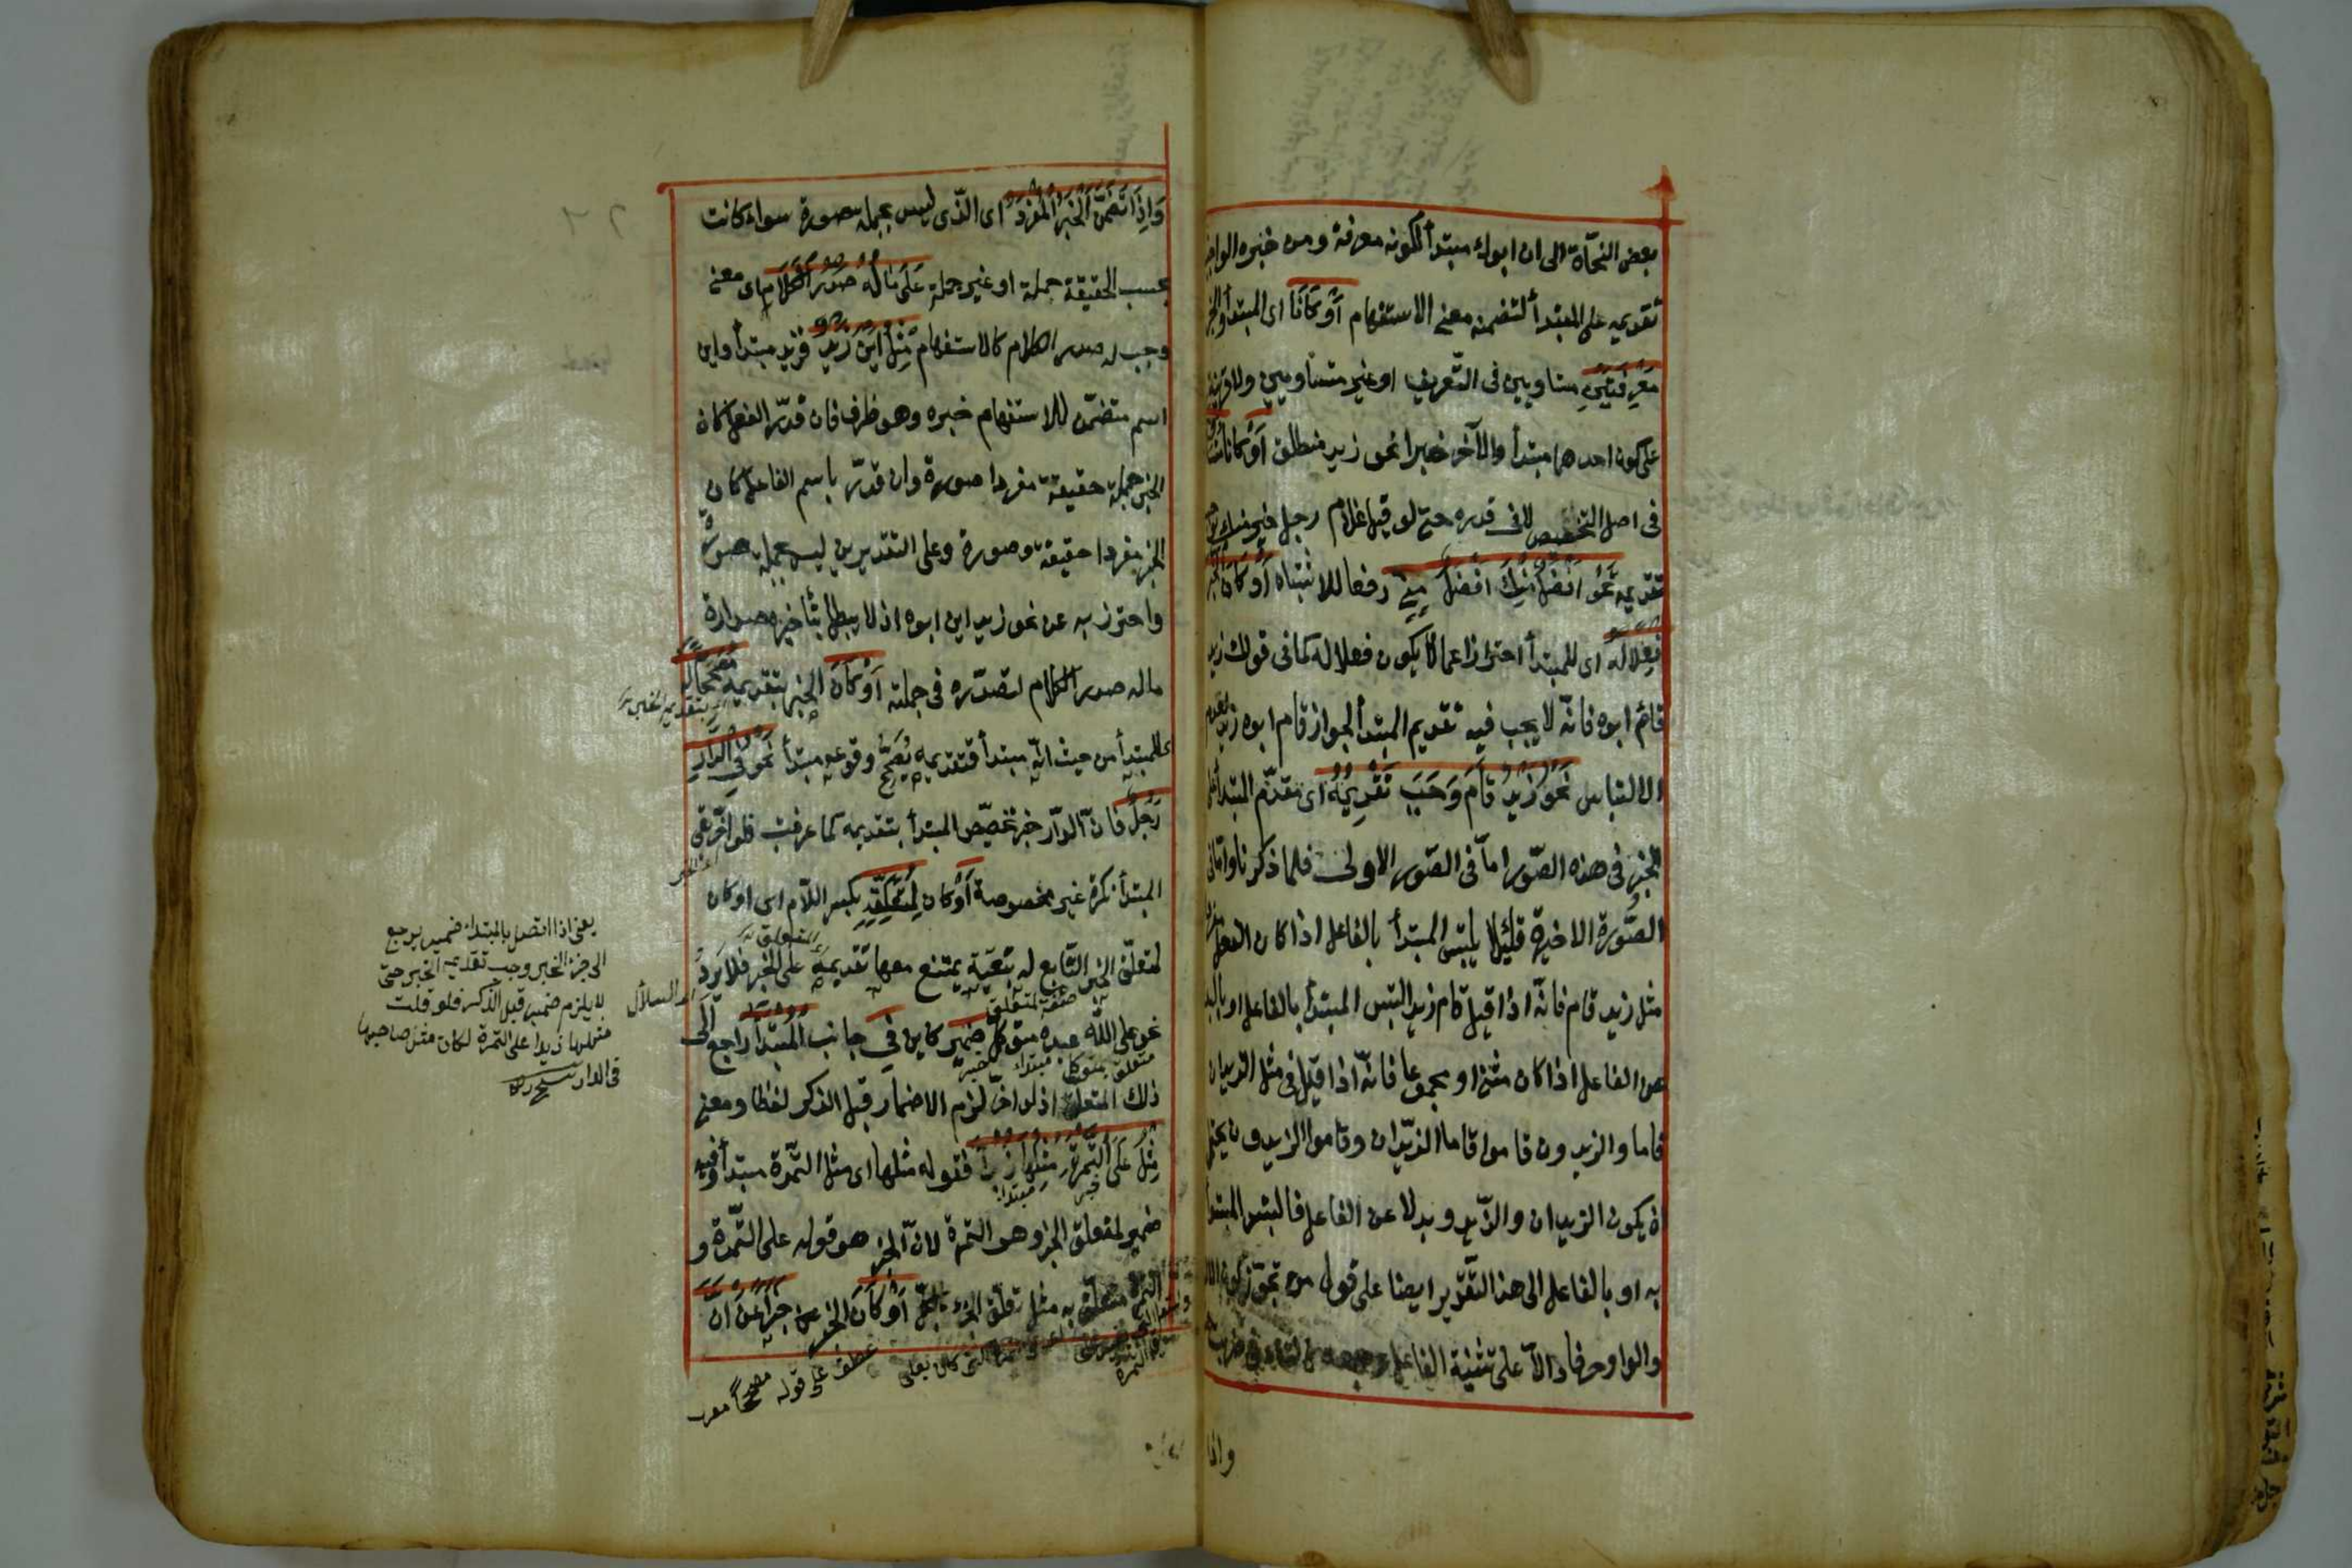 بعض النحاة الى ان ابوك مبتدأ لكونه معرفة ومن خبره الواجب
تقديمه على المبتدأ لتضمنه معنى الاستفهام أَوْ كَانَا اى المبتدأ والخبر
مَعْرِفَتَيْنِ متساويين فى التعريف او غير متساويين ولا قرينة
على كون احدهما مبتدأ والآخر خبرا نحو زيد المنطلق أَوْ كانا
فى اصل التخصيص لا فى قدره حتى لو قيل غلام رجل خير منك
تقديمه نَحْوُ أَفْضَلُ مِنْكَ أَفْضَلُ مِنّى رفعا للاشتباه أَوْ كَانَ الخبر
فِعْلًا لَهُ اى للمبتدأ احترازا عما لا يكون فعلا له كما فى قولك زيد
قائم ابوه فانّه لا يجب فيه تقديم المبتدأ لجواز قام ابوه زيد لعدم
الالتباس نَحْوُ زَيْدٌ قَامَ وَجَبَ تَقْدِيمُهُ اى تقدّم المبتدأ على
الخبر فى هذه الصّور امّا فى الصّور الاولى فلما ذكرنا وامّا فى
الصّورة الاخيرة فلئلا يلتبس المبتدأ بالفاعل اذا كان الفعل
مثل زيد قام فانّه اذا قيل قام زيد التبس المبتدأ بالفاعل او بالبدل
عن الفاعل اذا كان مثنى او مجموعا فانّه اذا قيل فى مثل الزيدان
قاما والزيدون قاموا قاما الزيدان وقاموا الزيدون يحتمل
ان يكون الزيدان والزيدون بدلا عن الفاعل فالتبس المبتدأ
به او بالفاعل الى هذا التقدير ايضا على قول من تجوّز كون الالف
والواو حرفا دالا على تثنية الفاعل وجمعه
واذا
وَاِذَا تَضَمَّنَ الْخَبَرُ الْمُفْرَدُ اى الذى ليس بجملة صورة سواء كانت
بحسب الحقيقة جملة او غير جملة عَلَى مَا لَهُ صَدْرُ الْكَلَامِ اى معنى
وجب له صدر الكلام كالاستفهام مِثْلُ أَيْنَ زَيْدٌ فزيد مبتدأ واين
اسم متضمّن للاستفهام خبره وهو ظرف فان قدّر الفعل كان
الخبر جملة حقيقة مفردا صورة وان قدّر باسم الفاعل كان
الخبر مفردا حقيقة وصورة وعلى التقديرين ليس بجملة صورة
واحترز به عن نحو زيد اين ابوه اذ لا يبطل بتأخيره صدارة
ما له صدر الكلام لتصدّره فى جملته أَوْ كَانَ الخبر بتقديمه مُصَحِّحًا لَهُ
اى بتقديم الخبر
للمبتدأ من حيث انّه مبتدأ فتقديمه يُصَحّح وقوعه مبتدأ نَحْوُ فِى الدَّارِ
رَجُلٌ فانّ الدّار خبر تخصّص المبتدأ بتقديمه كما عرفت فلو اخّر بقى
المبتدأ نكرة غير مخصوصة أَوْ كَانَ لِمُتَعَلِّقِهِ بكسر اللّام اى او كان
لمتعلّق الخبر التابع له تبعيّة يمتنع معها تقديمه على الخبر فلا يَرِدُ
صفة لمتعلق
نحو على اللّه عبده متوكل ضَمِيرٌ كاين فِى جانب الْمُبْتَدَأِ راجع الى
متعلق بمتوكل مبتداء خبر
ذلك المتعلق اذ لو اخّر لزم الاضمار قبل الذكر لفظا ومعنى
مِثْلُ عَلَى التَّمْرَةِ مِثْلُهَا زُبْدًا فقوله مثلها اى مثل التمرة مبتدأ وفيه
خبر مبتدا
ضمير لمتعلق الخبر وهو التمرة لانّ الخبر هو قوله على التّمرة و
التمرة متعلق به مثل تعلّق الجزء بالكل أَوْ كَانَ الخبر خَبَرًا عَنْ أَنَّ
عطف على قوله مصححًا معرب
يعنى اذا اتصل بالمبتداء ضمير يرجع
الى جزء الخبر وجب تقديم الخبر حتى
لا يلزم ضمير قبل الذكر فلو قلت
مثلها زبدا على التمرة لكان مثل صاحبها
فى الدار